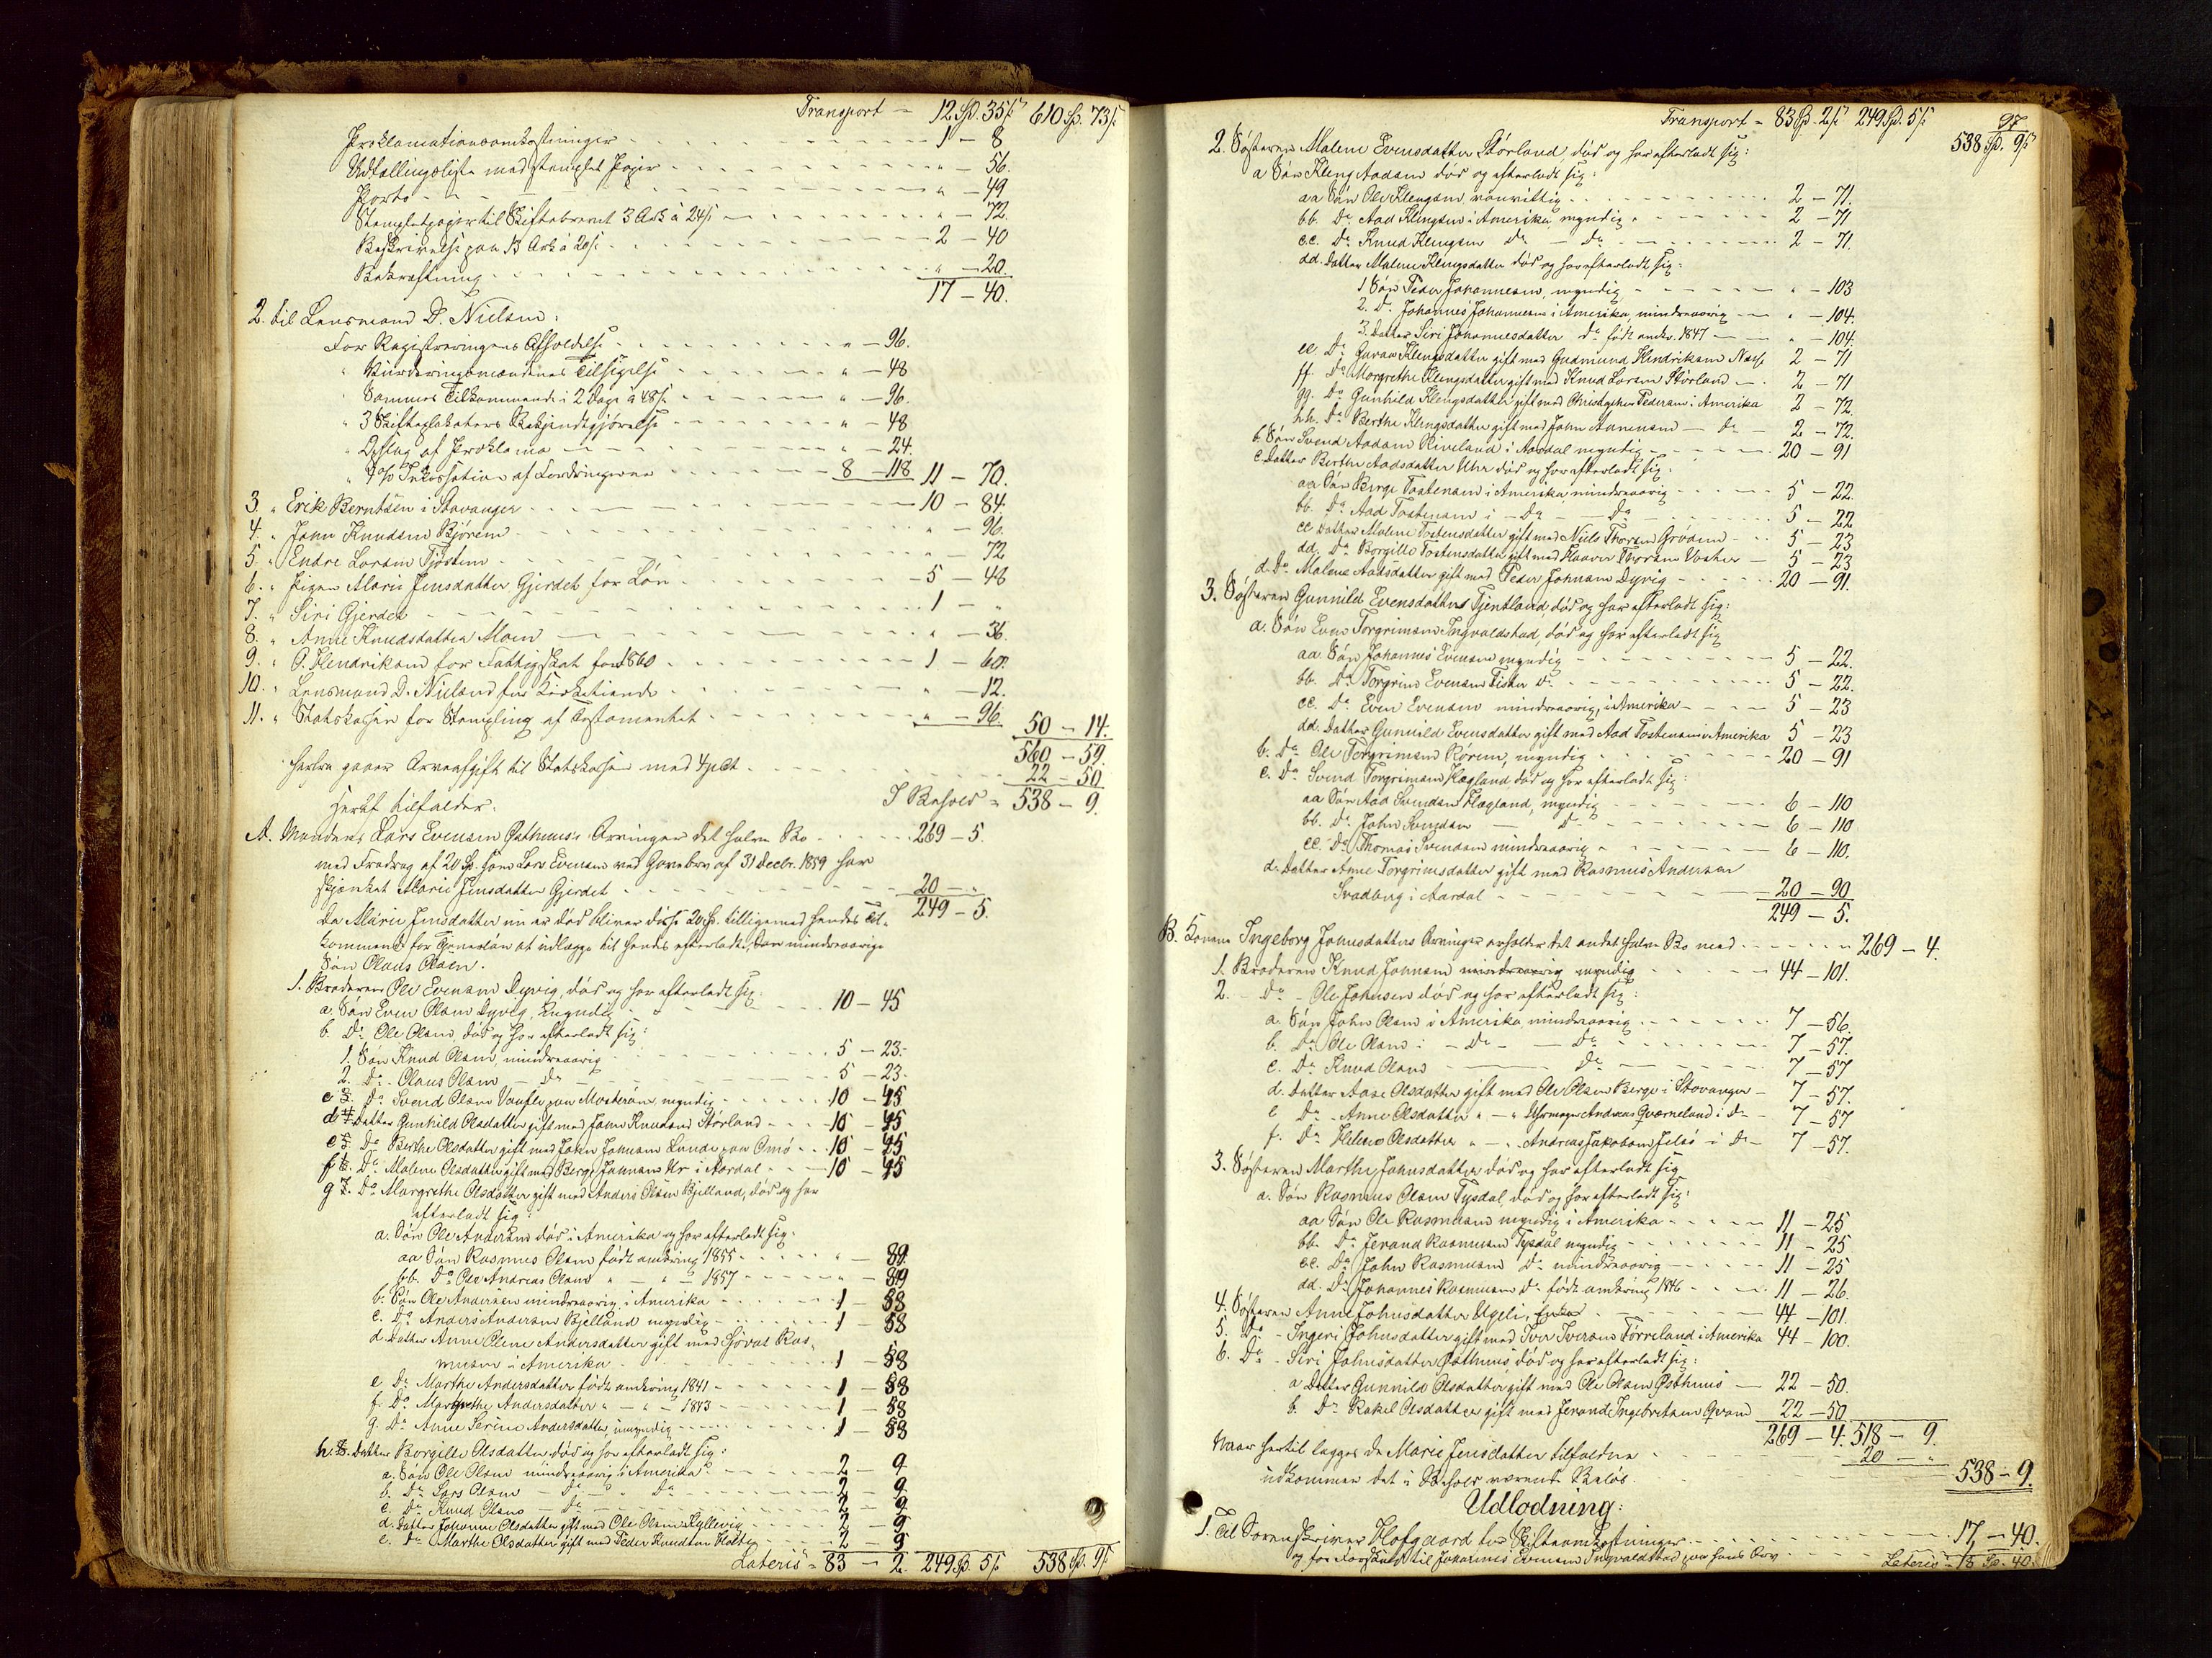 Transport = 12 Sp. 35 ſ 610 Sp. 73 ſ
Proklamationsomkostninger 1 - 8
Udtællingsliste med stemplet Papir " - 56.
Porto " - 49
Stempletpapir til Skiftebrevet 3 Ark à 24 ſ " - 72.
Beskrivelse paa 13 Ark à 20 ſ 2 - 40
Bekræftning " - 20.
17 - 40.
2. til Lensmand D. Nielsen:
For Registreringens Afholdelse " - 96.
" Vurderingsmændenes Tilsigelse " - 48
" Sammes Tilkommende i 2 Dage à 48 ſ " - 96.
" 3 Skifteplakaters Bekjendtgjørelse " - 48
" Opslag af Proklama " - 24.
" Inkassation af Fordringerne 8 - 118 11 - 70.
3. " Erik Berntsen i Stavanger 10 - 84.
4. " John Knudsen Bjørem " - 96.
5. " Endre Larsen Tjøstem " - 72
6. " Pigen Marie Jensdatter Gjerdet for Løn 5 - 48
7. " Siri Gjerdet 1 - "
8. " Anne Knudsdatter Moen " - 36.
9. " O. Hendriksen for Fattigskat for 1860 1 - 60.
10. " Lensmand D. Nieland for Kirketiende " - 12.
11. " Statskassen for Stempling af Testamentet " - 96. 50 - 14.
560 - 59.
herfra gaaer Arveafgift til Statskassen med 4 pCt 22 - 50.
I Behold = 538 - 9.
Heraf tilfalder:
A. Manden Lars Evensen Østhuus's Arvinger det halve Bo 269 - 5.
med Fradrag af 20 Sp. som Lars Evensen ved Gavebrev af 31 Decbr. 1859 har
skjænket Marie Jensdatter Gjerdet 20 - "
249 - 5.
Da Marie Jensdatter nu er død bliver disse 20 Sp. tilligemed hendes Til-
kommende for Tjenesløn at udlægge til hendes efterladte, mindreaarige
Søn Olaus Olsen.
1. Broderen Ole Evensen Dyvig, død og har efterladt sig:
a. Søn Even Olsen Dyvig, myndig 10 - 45
b. Do Ole Olsen, død og har efterladt sig:
1. Søn Knud Olsen, mindreaarig 5 - 23.
2. Do - Olaus Olsen - Do 5 - 23.
c 3. Do Svend Olsen paa Mosterøen, myndig 10 - 45
d 4. Datter Gunhild Olsdatter gift med John Knudsen Størland 10 - 45
e 5. Do Berthe Olsdatter gift med John Johnsen Lunde paa Omø 10 - 45
f 6. Do Malene Olsdatter gift med Berge Johnsen Ur i Aardal 10 - 45
g 7. Do Margrethe Olsdatter gift med Anders Olsen Bjelland, død og har
efterladt sig:
a. Søn Ole Andersen død i Amerika og har efterladt sig:
aa Søn Rasmus Olsen født omkring 1855 " - 89.
bb. Do Ole Andreas Olsen " - " - 1857 " - 89
b. Søn Ole Andersen mindreaarig, i Amerika 1 - 58
c. Do Anders Andersen Bjelland myndig 1 - 58
d. Datter Anne Olene Andersdatter gift med Sjovat Ras-
musen i Amerika 1 - 58
e Do Marthe Andersdatter født omkring 1841 1 - 58
f. Do Margrethe Andersdatter " - " - 1843 1 - 58
g. Do Anne Serine Andersdatter, umyndig 1 - 58
h 8. Datter Borgille Olsdatter død og har efterladt sig:
a. Søn Ole Olsen mindreaarig i Amerika 2 - 9
b. Do Lars Olsen - Do - Do 2 - 9
c. Do Knud Olsen - Do 2 - 9
d. Datter Johanne Olsdatter gift med Ole Olsen Hyllevig 2 - 9
e. Do Marthe Olsdatter gift med Peder Knudsen 2 - 9
Lateris = 83 - 2. 249 Sp. 5 ſ 538 Sp. 9 ſ
97
Transport = 83 Sp. 2 ſ 249 Sp. 5 ſ 538 Sp. 9 ſ
2. Søsteren Malene Evensdatter Størland, død og har efterladt sig:
a Søn Kleng Aadsen død og efterladt sig:
aa Søn Ole Klengsen, vanvittig 2 - 71.
bb. Do Aad Klengsen i Amerika, myndig 2 - 71
cc. Do Knud Klengsen Do - Do 2 - 71.
dd. Datter Malene Klengsdatter død og har efterladt sig:
1 Søn Peder Johannesen, myndig " - 103
2. Do Johannes Johannesen i Amerika, mindreaarig " - 104.
3. Datter Siri Johannesdatter Do født omkr. 1847 " - 104.
ee. Do Guroe Klengsdatter gift med Gudmund Hendriksen 2 - 71
ff. Do Margrethe Klengsdatter gift med Knud Larsen Størland 2 - 71
gg. Do Gunhild Klengsdatter gift med Christopher Pedersen i Amerika 2 - 72.
hh. Do Berthe Klengsdatter gift med John Annensen - Do 2 - 72.
b. Søn Svend Aadsen Riveland i Aardal myndig 20 - 91
c. Datter Berthe Aadsdatter Uhr død og har efterladt sig:
aa Søn Berge Tostensen i Amerika mindreaarig 5 - 22.
bb. Do Aad Tostensen i - Do - Do 5 - 22
cc Datter Malene Tostensdatter gift med Niels Thorsen Grødem 5 - 23
dd. Do Borgille Tostensdatter gift med Haaver Thorsen 5 - 23
d. Do Malene Aadsdatter gift med Peder Johnsen Dyvig 20 - 91.
3. Søsteren Gunnild Evensdatter Tjentland, død og har efterladt sig:
a. Søn Even Torgrimsen Ingvaldstad, død og har efterladt sig
aa. Søn Johannes Evensen myndig 5 - 22.
bb. Do Torgrim Evensen Fister Do 5 - 22.
cc. Do Even Evensen mindreaarig, i Amerika 5 - 23
dd. Datter Gunnild Evensdatter gift med Aad Tostensen i Amerika 5 - 23
b. Do Ole Torgrimsen Rørem, myndig 20 - 91
c. Do Svend Torgrimsen Hægland død og har efterladt sig:
aa Søn Aad Svendsen Hægland, myndig 6 - 110
bb. Do John Svendsen - Do 6 - 110
cc. Do Thomas Svendsen mindreaarig 6 - 110.
d. Datter Anne Torgrimsdatter gift med Rasmus Andersen
Svadberg i Aardal 20 - 90
249 - 5.
B. Konen Ingeborg Johnsdatters Arvinger arveholder det andet halve Bo med 269 - 4.
1. Broderen Knud Johnsen mindreaarig myndig 44 - 101.
2. - Do - Ole Johnsen død og har efterladt sig:
a. Søn John Olsen i Amerika, mindreaarig 7 - 56.
b. Do Ole Olsen i - Do - Do 7 - 57.
c. Do Knud Olsen - Do 7 - 57
d. Datter Aase Olsdatter gift med Ole Olsen Berge i Stavanger 7 - 57.
e Do - Anne Olsdatter " - " Uhrmager Andreas Qværneland i Do 7 - 57
f. Do Helene Olsdatter " - " Andreas Jakobsen Jelsø i Do 7 - 57.
3. Søsteren Marthe Johnsdatter død og har efterladt sig
a. Søn Rasmus Olsen Tysdal, død og har efterladt sig:
aa Søn Ole Rasmusen myndig i Amerika 11 - 25
bb. Do Jerand Rasmusen Tysdal myndig 11 - 25
cc. Do John Rasmusen Do mindreaarig 11 - 25
dd. Do Johannes Rasmusen Do født omkring 1846 11 - 26.
4. Søsteren Anne Johnsdatter Ugeli, Enke 44 - 101.
5. Do - Ingeri Johnsdatter gift med Iver Iversen Tørreland i Amerika 44 - 100.
6. Do - Siri Johnsdatter Østhuus død og har efterladt sig:
a Datter Gunnild Olsdatter gift med Ole Olsen Østhuus 22 - 50.
b. Do Rakel Olsdatter gift med Jerand Ingebretsen Qvam 22 - 50
269 - 4. 518 - 9.
Naar hertil lægges de Marie Jensdatter tilfaldne 20 - "
udkommer det i Behold værende Beløb. 538 - 9.
Udlodning:
1. Til Sorenskriver Hofgaard for Skifteomkostninger 17 - 40.
og for Forskud til Johannes Evensen Ingvaldstad paa hans Arv
Lateris = 18 Sp. 40.